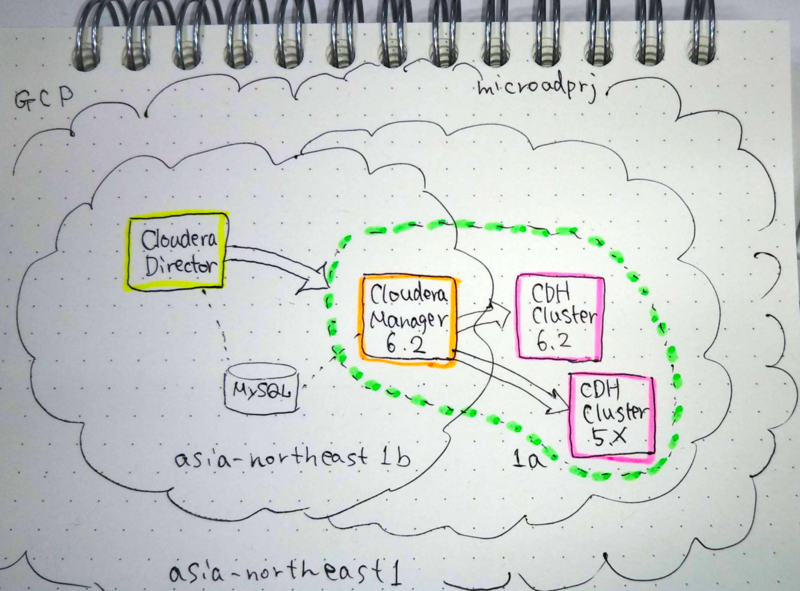 GCP
microadprj
Cloudera
Director
Cloudera
Manager
6.2
CDH
Cluster
6.2
MySQL
CDH
Cluster
5.X
asia-northeast 1b
1a
asia-northeast1